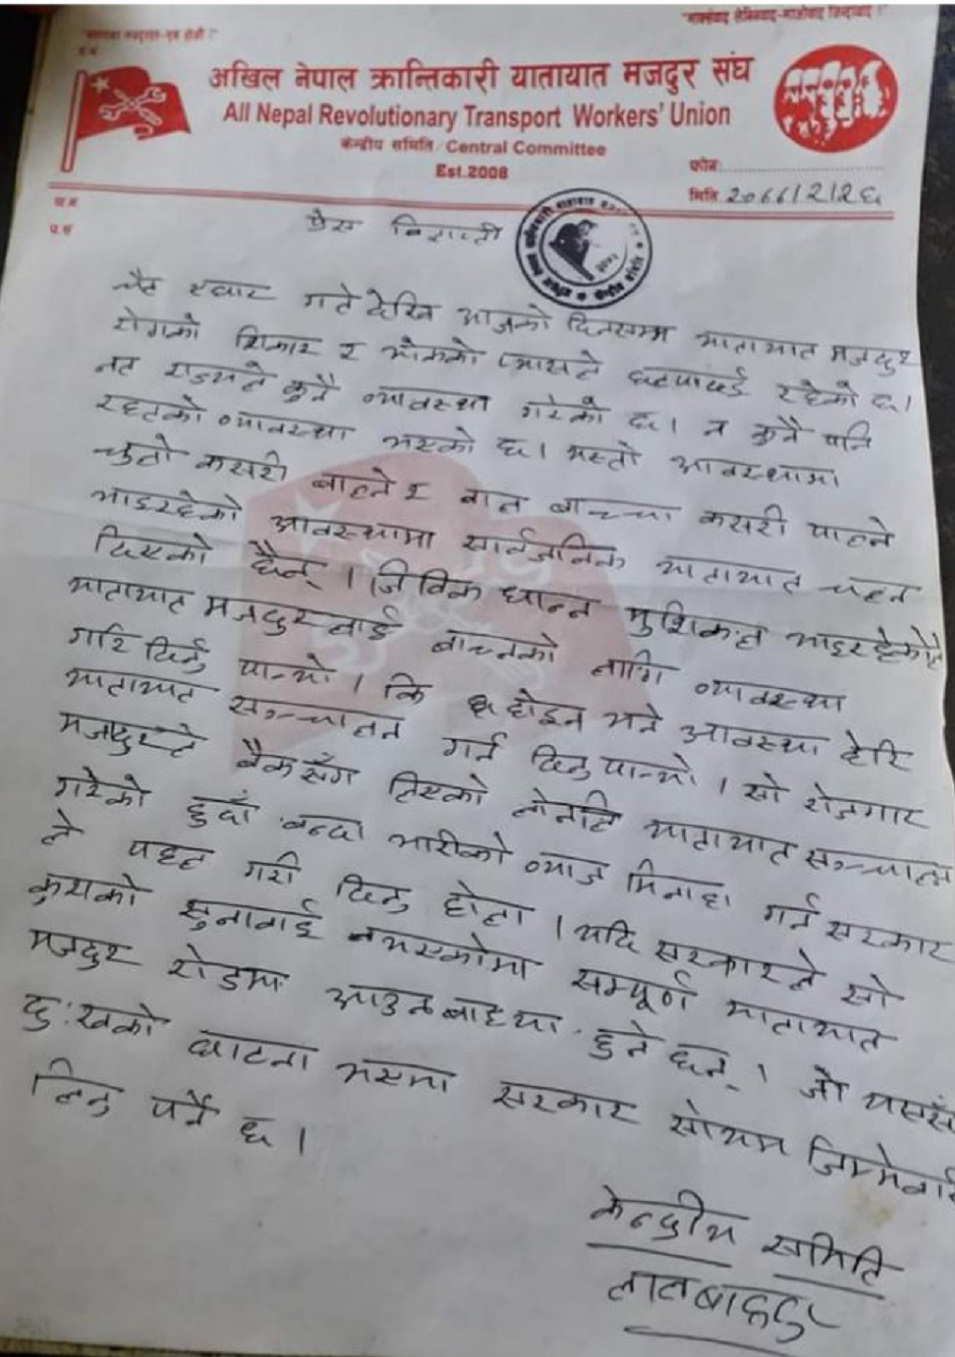 "मार्क्सवाद लेनिनवाद-माओवाद जिन्दावाद !"
अखिल नेपाल क्रान्तिकारी यातायात मजदुर संघ
All Nepal Revolutionary Transport Workers' Union
केन्द्रीय समिति/Central Committee
Est.2008
फोनः
मिति. 2066/2/26
च.नं
प.सं
प्रेस विज्ञप्ती
चैत एघार गते देखि आजको दिनसम्म यातायात मजदुर
रोगको शिकार र भोकको प्यासले छटपटाई रहेको छ।
नत राज्यले कुनै व्यावस्था गरेको छ। न कुनै पनि
राहतको व्यावस्था भएको छ। यस्तो आवस्थामा
चुलो कसरी बाल्ने र बाल बाच्चा कसरी पाल्ने
भाइरहेको आवस्थामा सार्वजनिक यातायात चल्न
दिएको छैन्। जिविक धान्न मुश्किल भाइरहेकोले
यातायात मजदुरलाई बाच्नको लागि व्यावस्था
गरि दिनु पार्‍यो। कि होइन भने आवस्था हेरि
यातायात सञ्चालन गर्न दिनु पार्‍यो। सो रोजगार
मजदुरले बैंकसँग लिएको लोनले यातायात सञ्चालन
गरेको हुदाँ बन्दा भारीको व्याज मिनाहा गर्न सरकार
ले पहल गरी दिनु होला। यदि सरकारले सो
कुराको सुनावाई नभएकोमा सम्पूर्ण यातायात
मजदुर रोडमा आउन बाध्य हुने छन्। जो यसस
दुःखको घाटना भएमा सरकार सोयम जिम्मेवारी
लिनु पर्ने छ।
केन्द्रीय समिति
लालबाहदुर